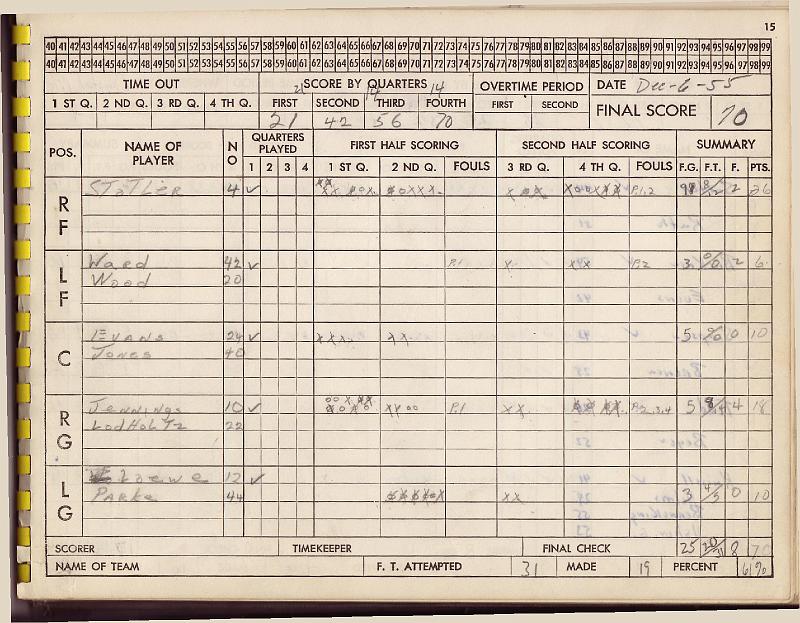 15
40 41 42 43 44 45 46 47 48 49 50 51 52 53 54 55 56 57 58 59 60 61 62 63 64 65 66 67 68 69 70 71 72 73 74 75 76 77 78 79 80 81 82 83 84 85 86 87 88 89 90 91 92 93 94 95 96 97 98 99
40 41 42 43 44 45 46 47 48 49 50 51 52 53 54 55 56 57 58 59 60 61 62 63 64 65 66 67 68 69 70 71 72 73 74 75 76 77 78 79 80 81 82 83 84 85 86 87 88 89 90 91 92 93 94 95 96 97 98 99
TIME OUT SCORE BY QUARTERS OVERTIME PERIOD DATE Dec-6-55
21 14 14
1 ST Q. 2 ND Q. 3 RD Q. 4 TH Q. FIRST SECOND THIRD FOURTH FIRST SECOND FINAL SCORE 70
21 42 56 70
POS. NAME OF PLAYER NO QUARTERS PLAYED FIRST HALF SCORING SECOND HALF SCORING SUMMARY
1 2 3 4 1 ST Q. 2 ND Q. FOULS 3 RD Q. 4 TH Q. FOULS F.G. F.T. F. PTS.
RF STATLER 4 P.1,2 2 26
LF Ward 42 P.1 P.2 3 0/0 2 6
Wood 20
C EVANS 24 5 0/0 0 10
Jones 40
RG Jennings 10 P.1 P.2,3,4 5 4 18
LodHoltz 22
LG Loewe 12
Parke 44 3 4/5 0 10
SCORER TIMEKEEPER FINAL CHECK 25 8 70
NAME OF TEAM F. T. ATTEMPTED 31 MADE 19 PERCENT 61%